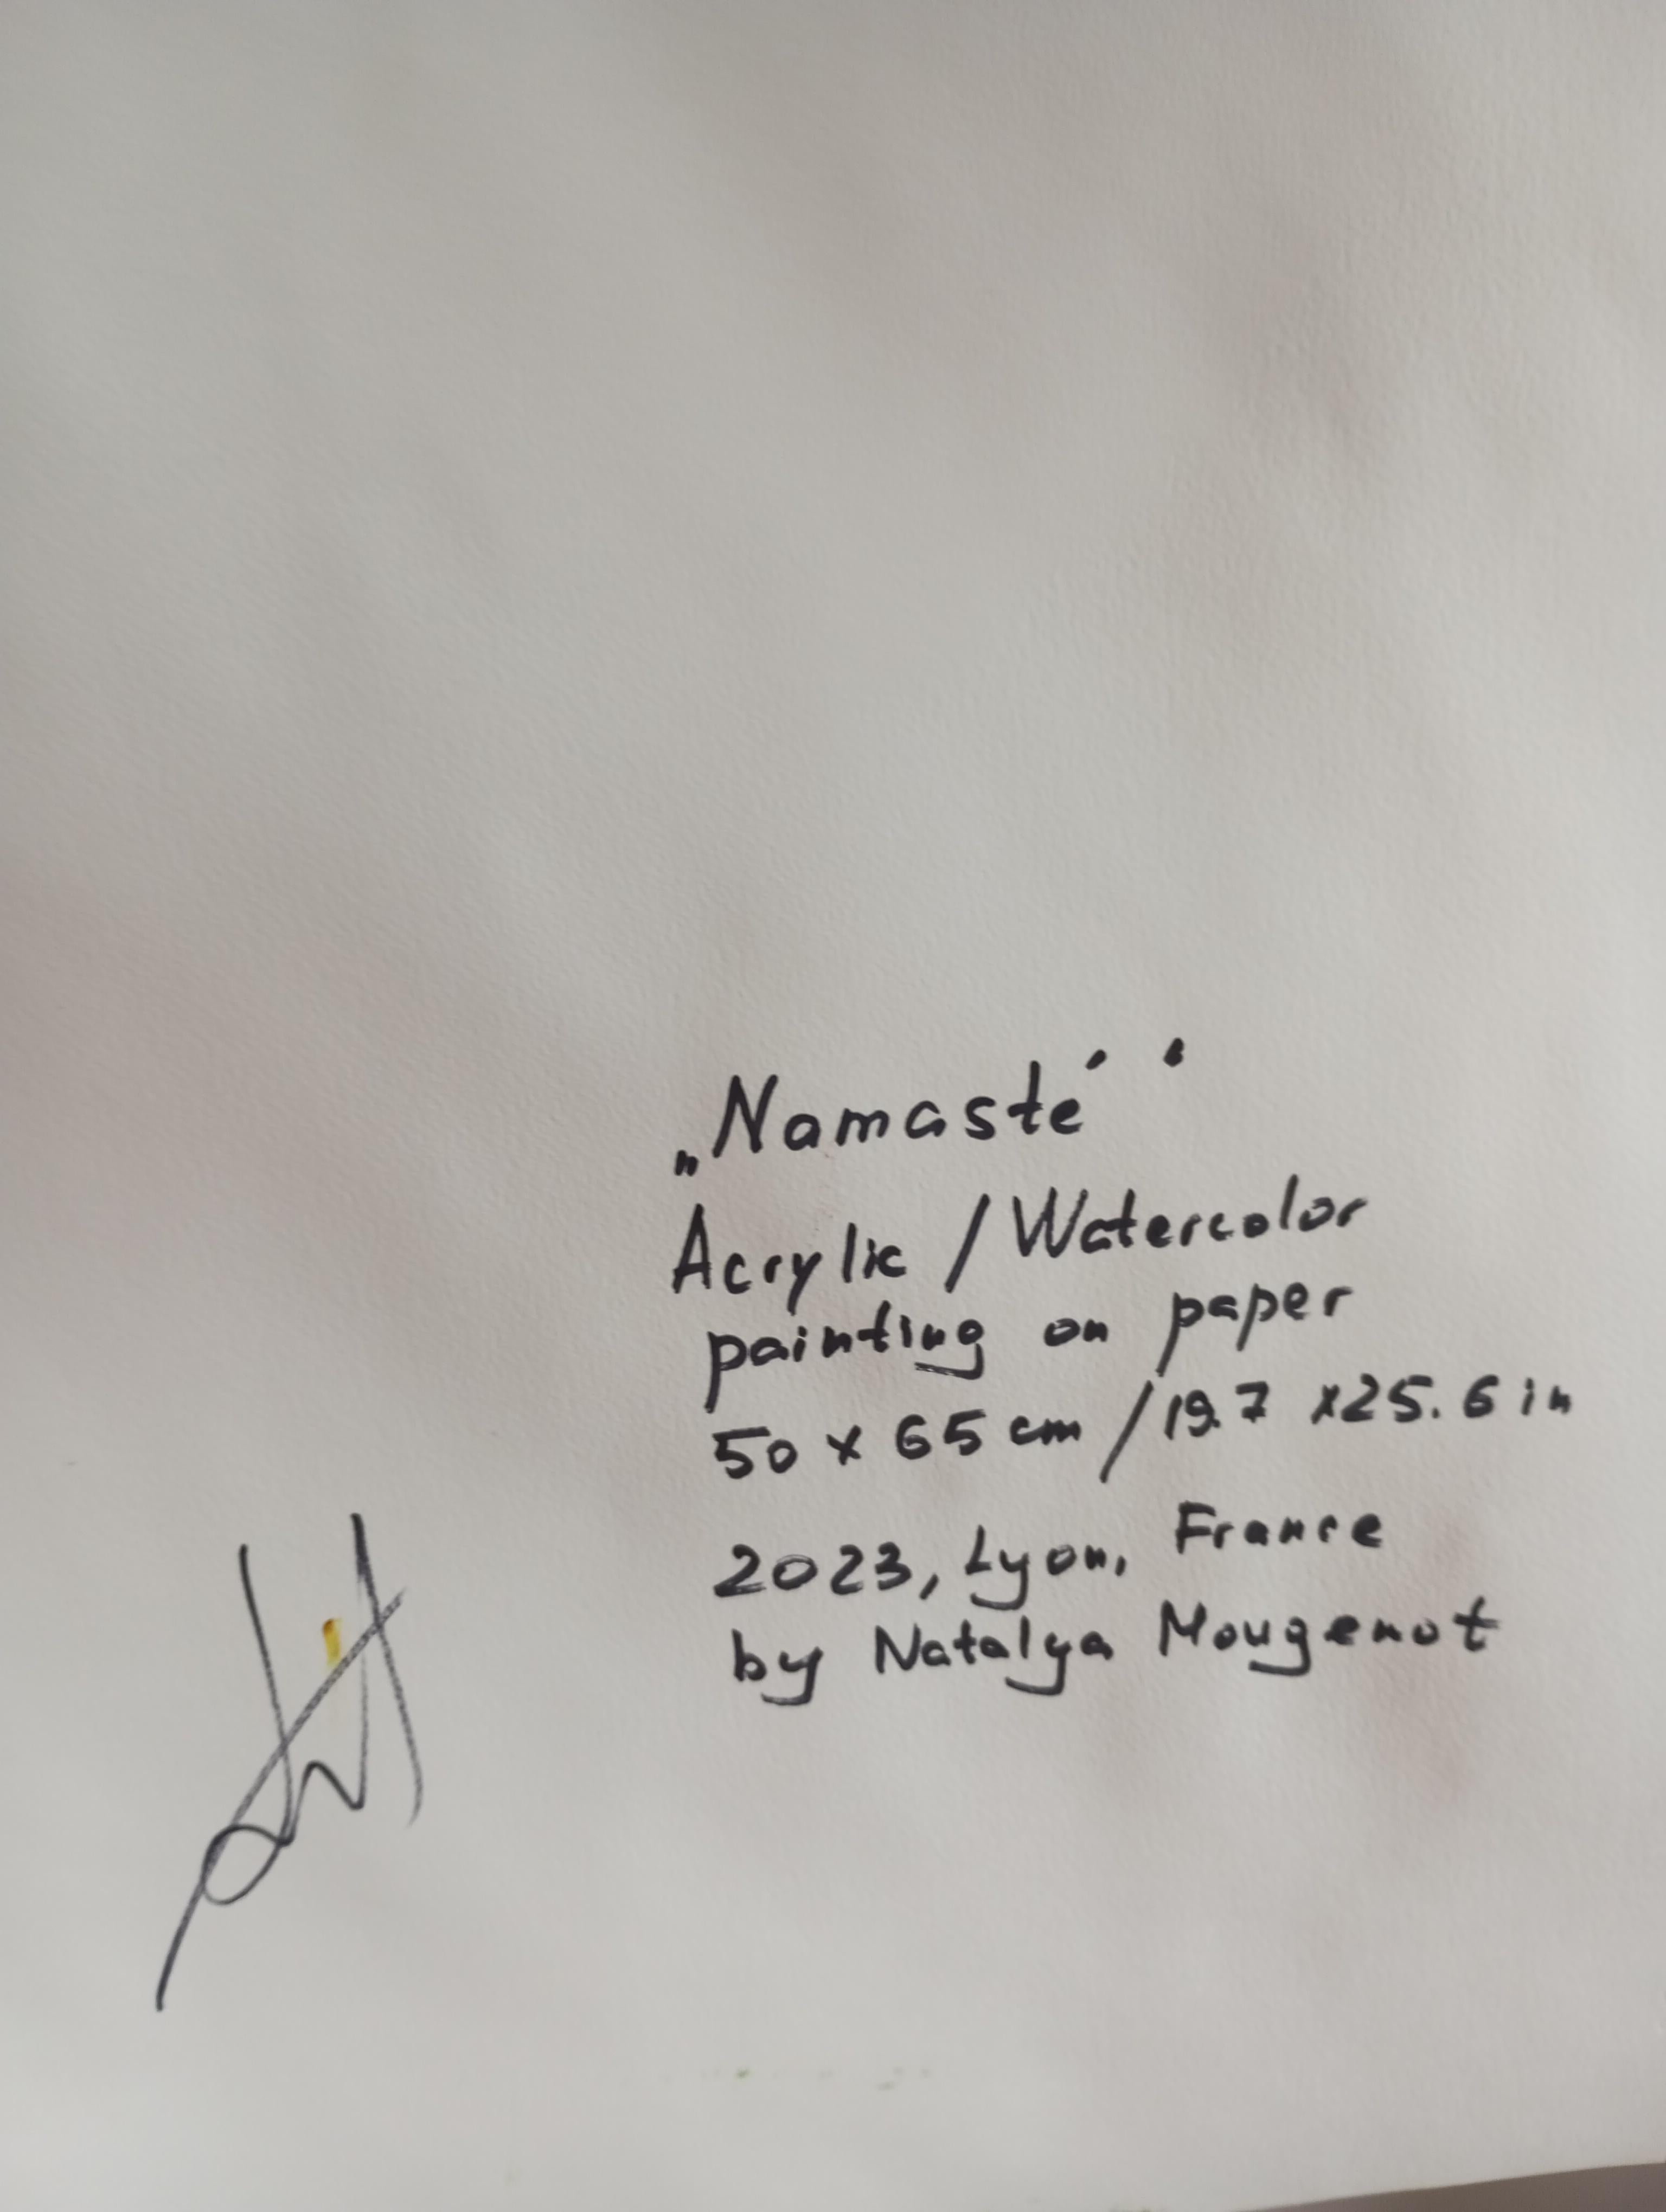 „Namasté"
Acrylic / Watercolor
painting on paper
50 x 65 cm / 19.7 x 25.6 in
2023, Lyon, France
by Natalya Mougenot